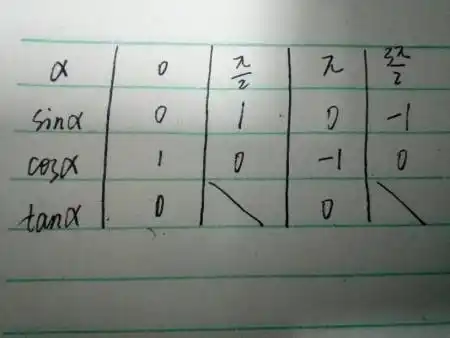 α 0 π/2 π 3π/2
sinα 0 1 0 -1
cosα 1 0 -1 0
tanα 0 \ 0 \